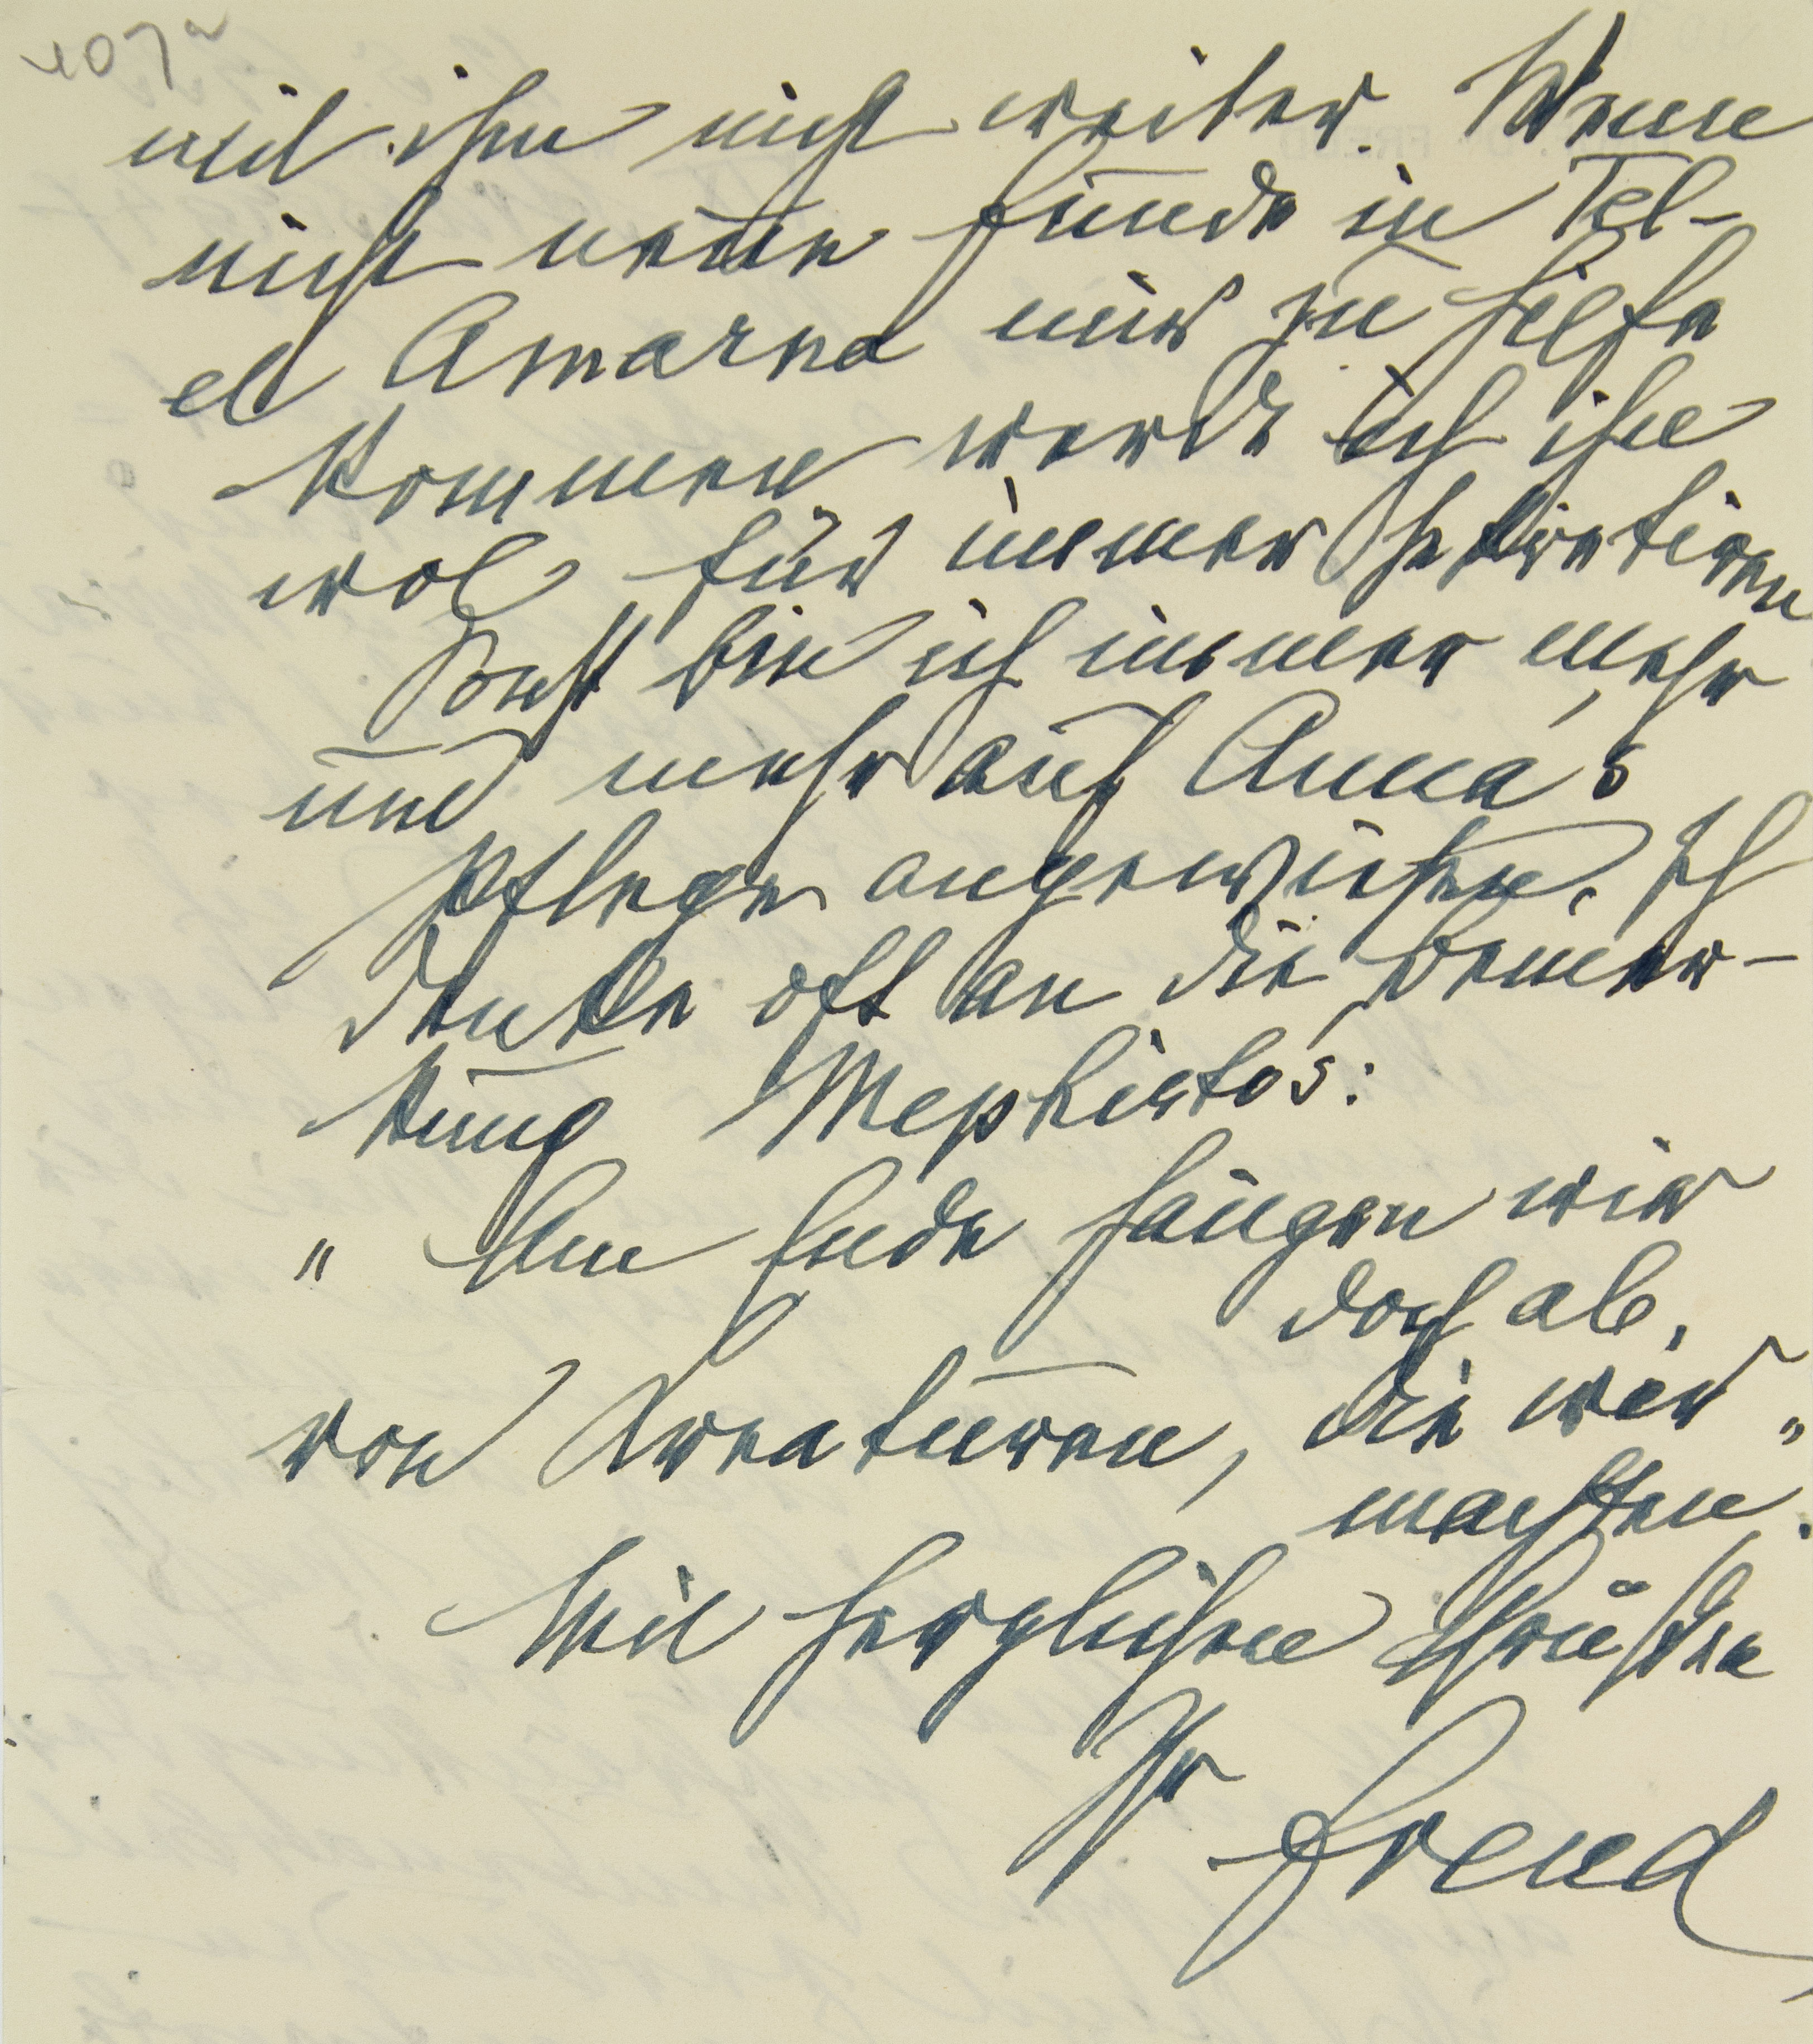 107a
mit ihm nicht weiter. Wenn
nicht neue Funde in Tel-
el Amarna mir zu Hilfe
kommen werde ich ihn
wol für immer sekretieren
Sonst bin ich immer mehr
und mehr auf Anna's
Pflege angewiesen. Ich
denke oft an die Bemer-
kung Mephistos:
„Am Ende hängen wir
doch ab,
von Kreaturen, die wir
machten."
Mit herzlichen Grüßen
Ihr
Freud